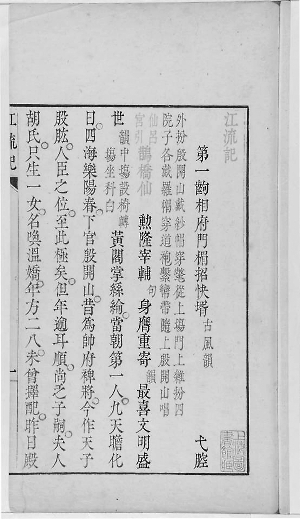 江流記
第一齣相府門楣招快壻 古風韻 弋腔
外扮殷開山戴紗帽穿蟒從上場門上雜扮四
院子各戴羅帽穿道袍繫鸞帶隨上殷開山唱
仙呂宮引 鵲橋仙 勲隆宰輔句身膺重寄韻最喜文明盛
世韻中場設椅轉場坐科白 黃閣掌絲綸當朝第一人九天瞻化
日四海樂陽春下官殷開山昔為帥府裨將今作天子
股肱人臣之位至此極矣但年逾耳順尚乏子嗣夫人
胡氏只生一女名喚溫嬌年方二八未曾擇配昨日殿
江流記
一